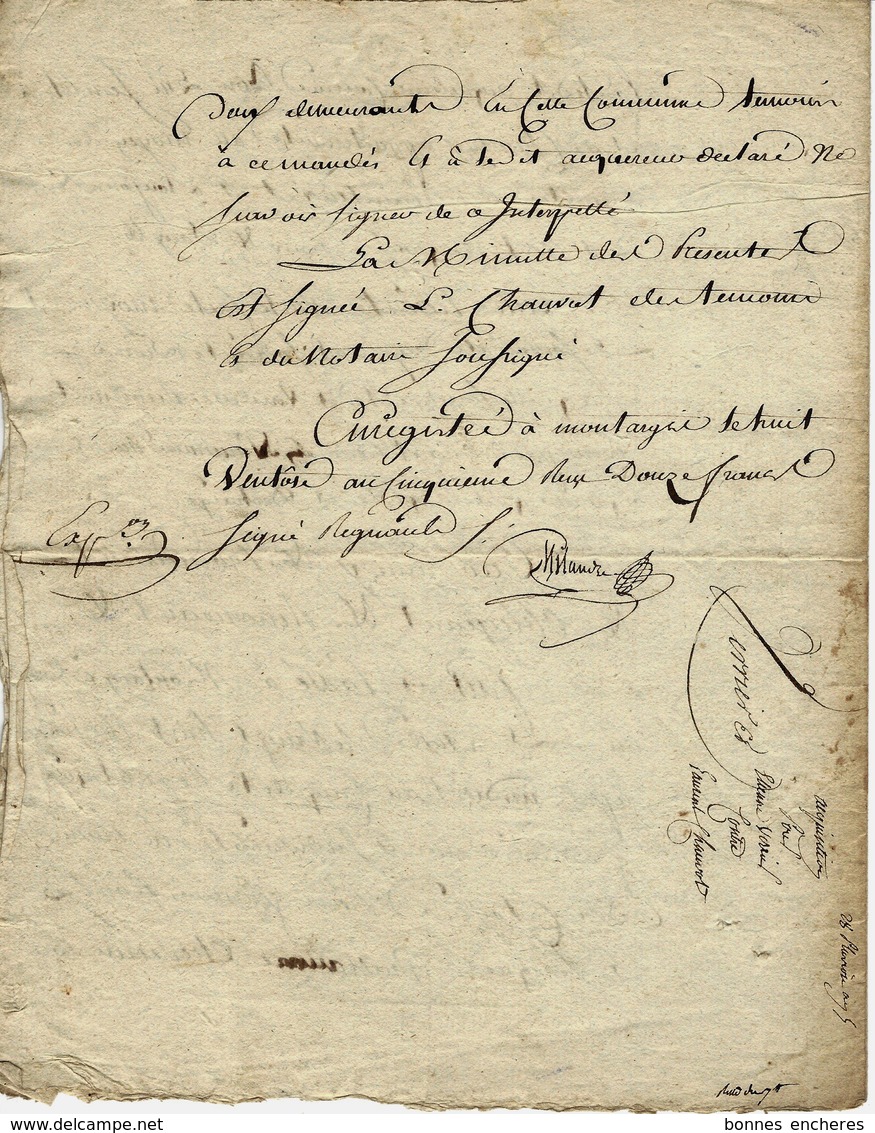 deux demeurants En Cette Commune temoins
à ce mandés Et à Ledit acquereur declaré Ne
scavoir signer de ce Interpellé
La Minutte des Presentes
Est signée L. Chauvot des temoins
Et du Notaire Soussigné
Enregistrée à montargis le huit
Ventôse an Cinquieme Reçu Douze francs
signé Regnault
Expon
Milandre
Perrier
acquisition
Pour
Etienne Perrier
Contre
Laurent Chauvot
28 Pluviose an 5
bonnes encheres